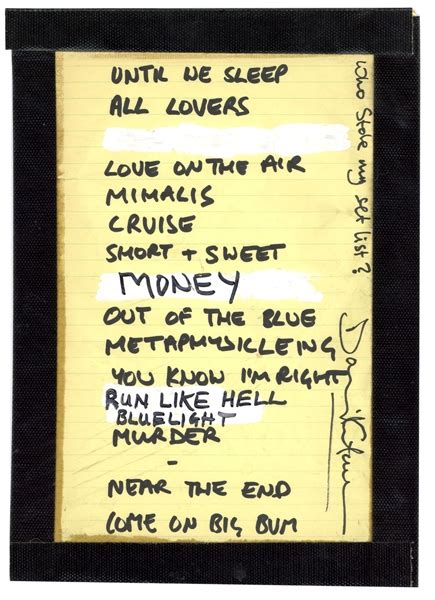 UNTIL WE SLEEP
ALL LOVERS
LOVE ON THE AIR
MIHALIS
CRUISE
SHORT + SWEET
MONEY
OUT OF THE BLUE
METAPHYSICLEING
YOU KNOW I'M RIGHT
RUN LIKE HELL
BLUELIGHT
MURDER
-
NEAR THE END
COME ON BIG BUM
Who Stole my set list?